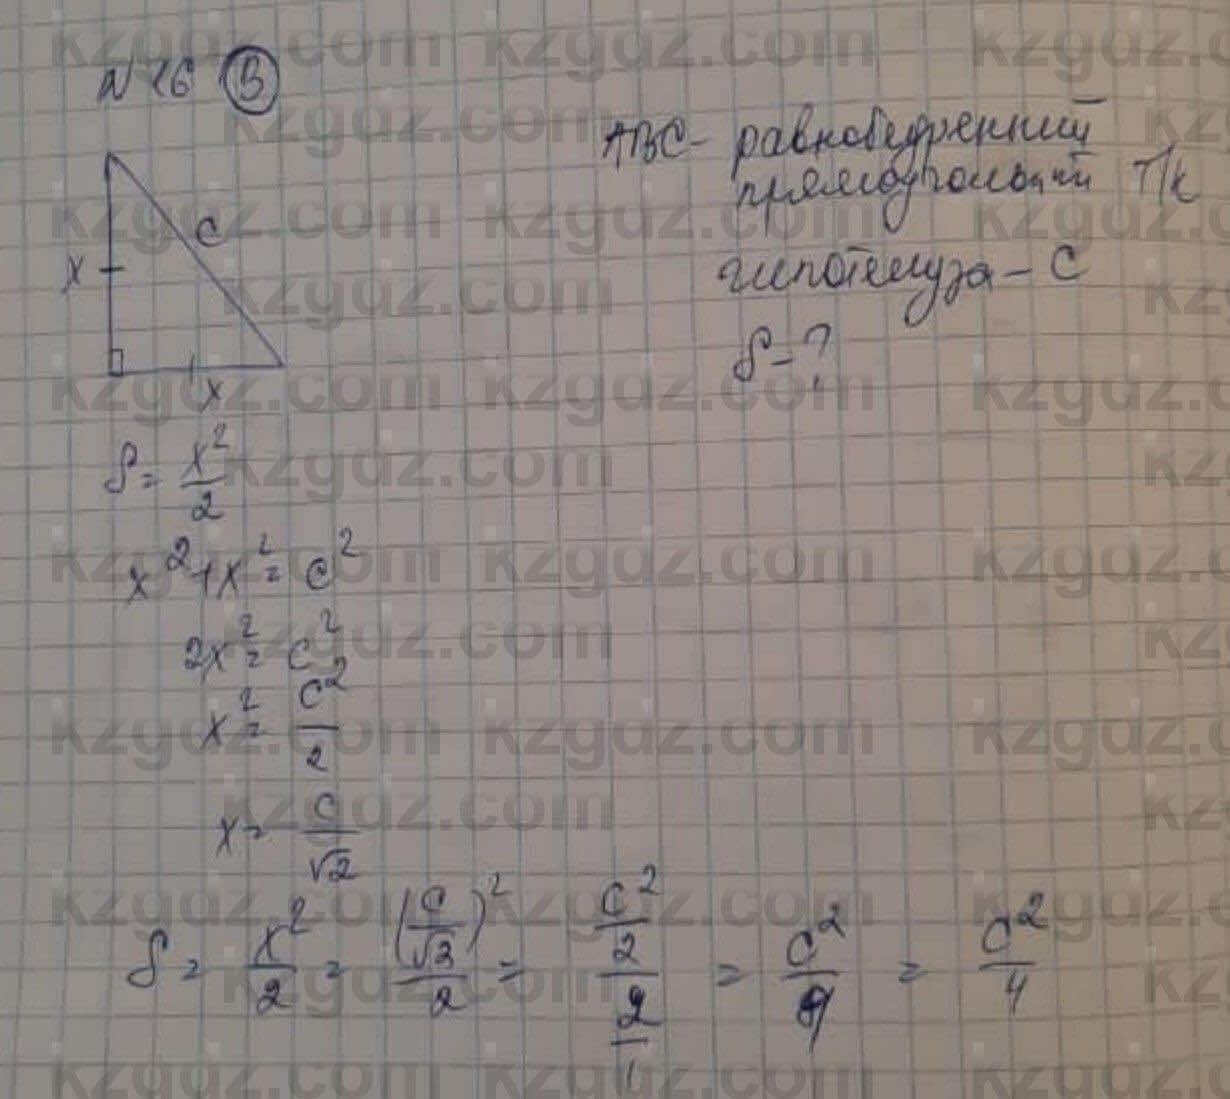 N 16 (В)
АВС - равнобедренный
прямоугольный Т/к
гипотенуза - С
S - ?
x
c
x
S = x²/2
x² + x² = c²
2x² = c²
x² = c²/2
x = c/√2
S = x²/2 = (c/√2)²/2 = c²/2 / 2/1 = c²/4 = c²/4
kzgdz.com